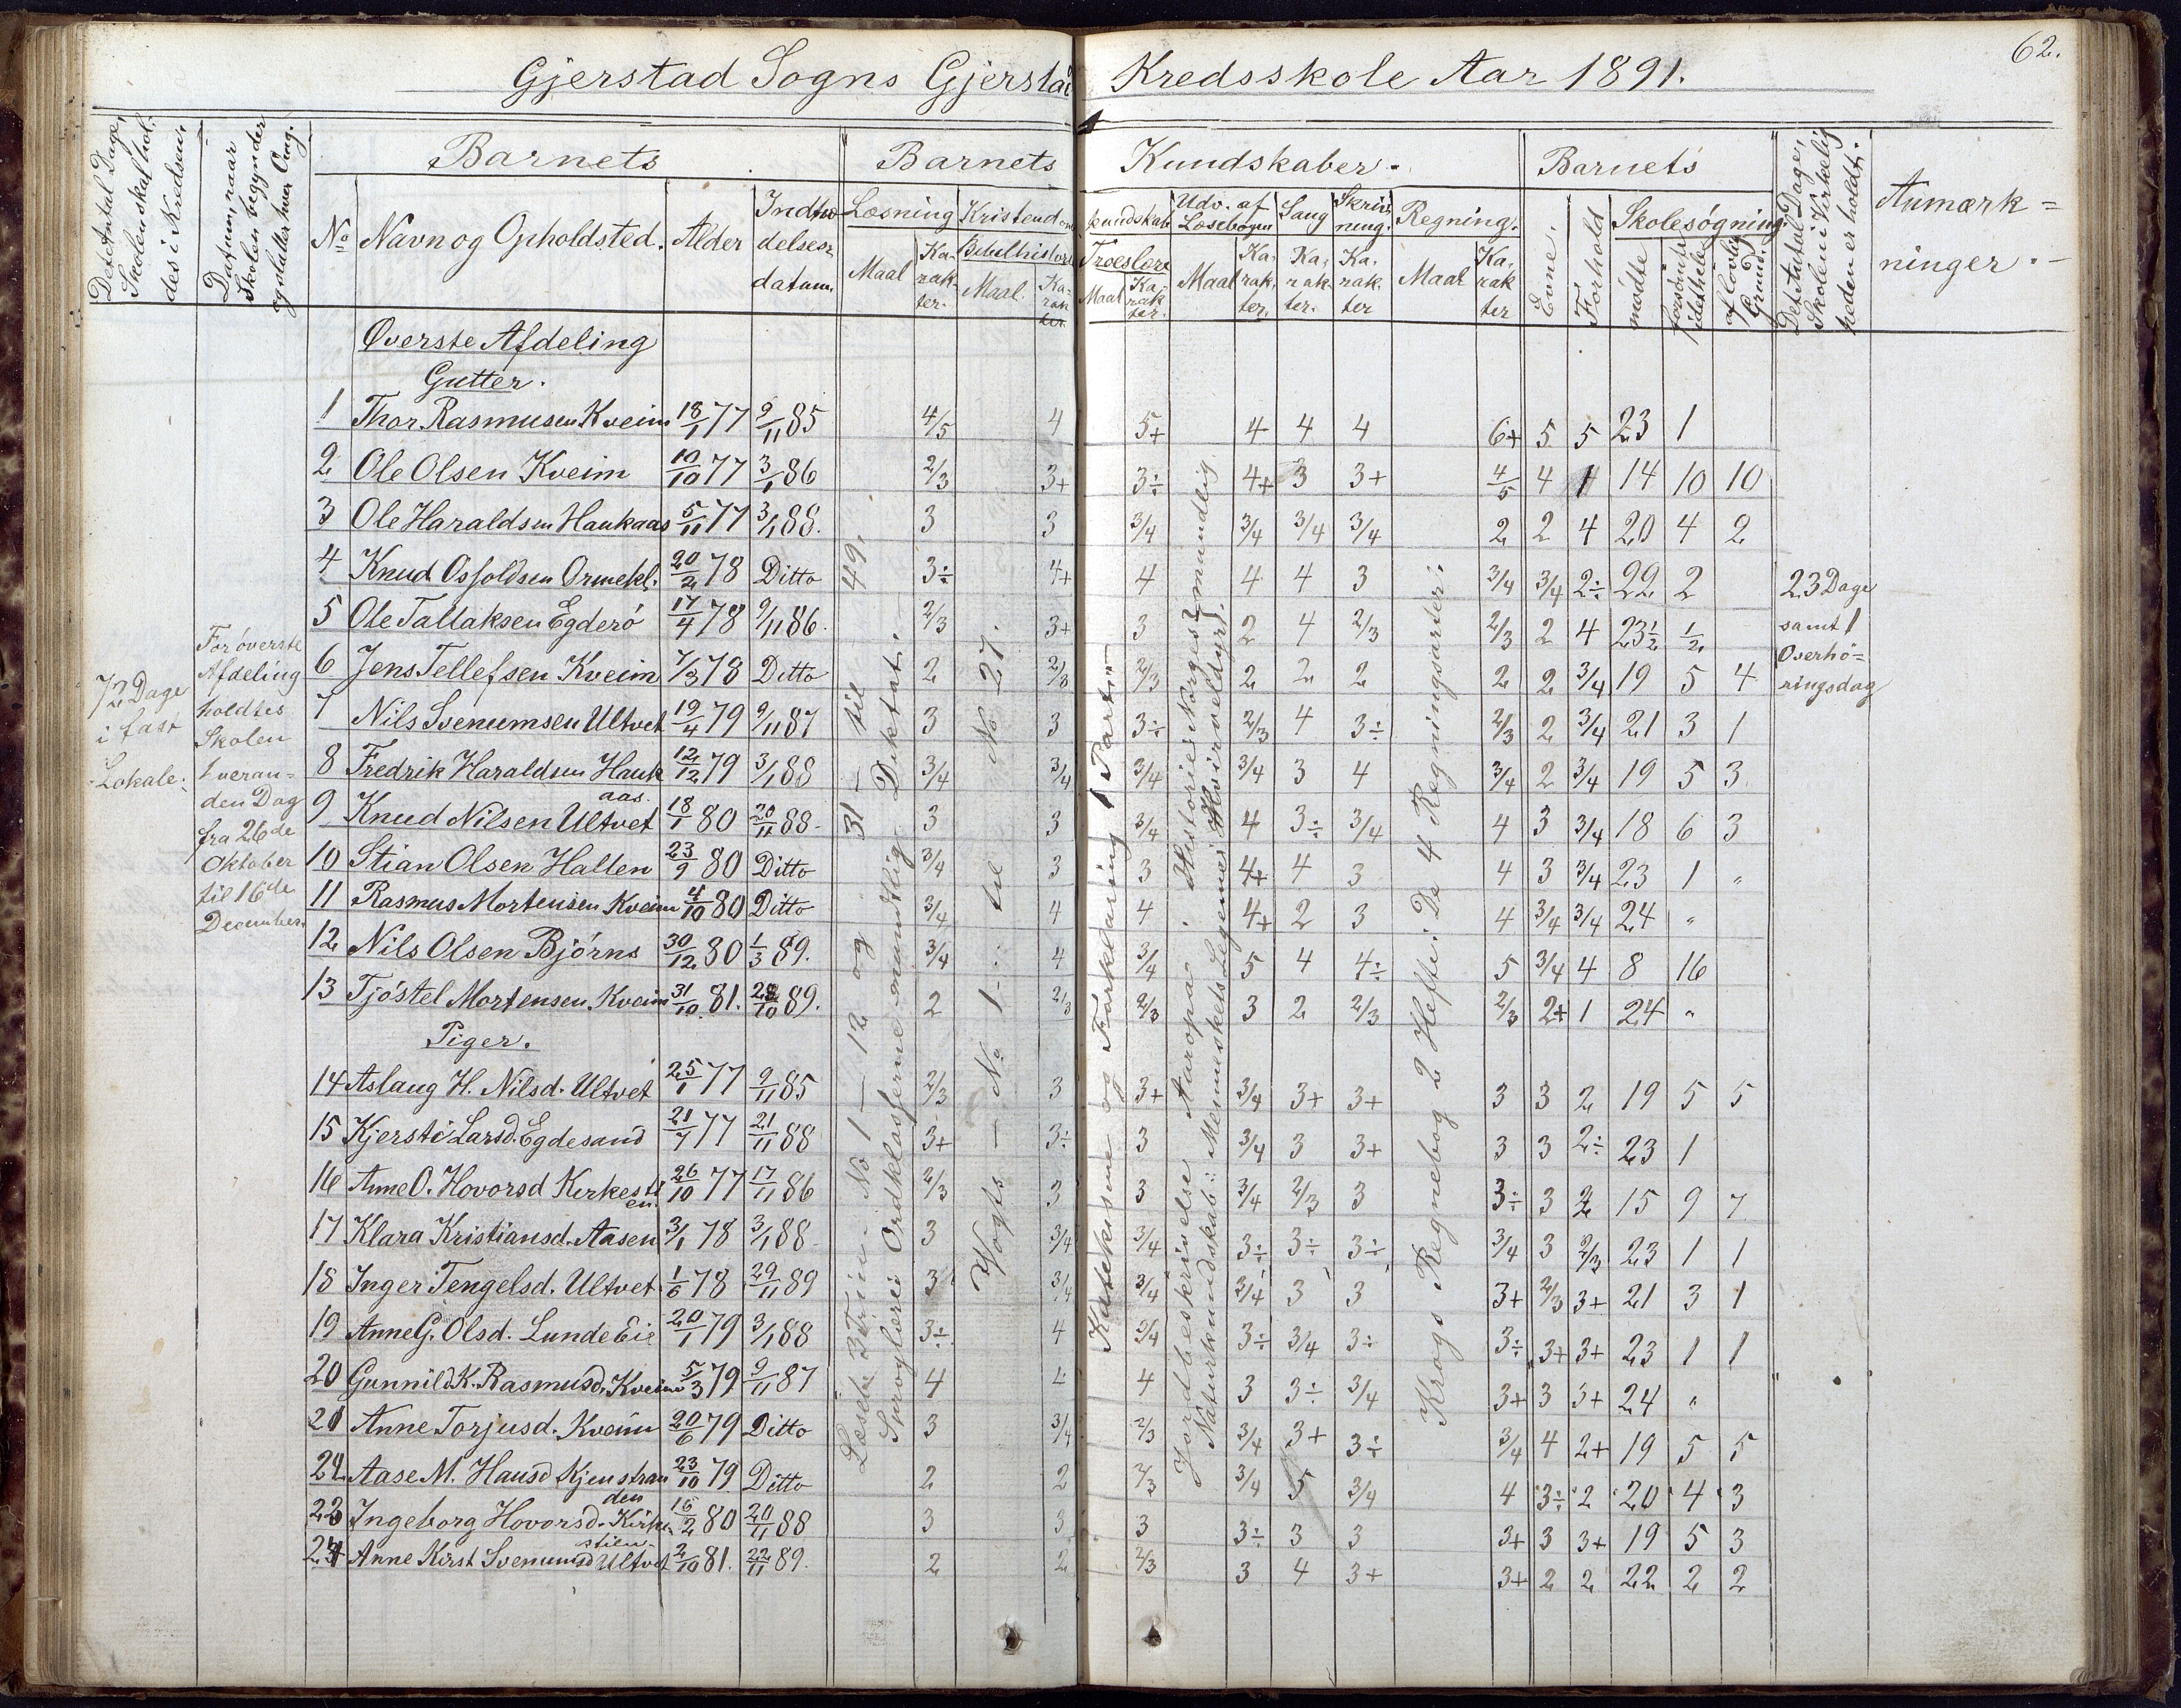 62.
Gjerstad Sogns Gjerstad Kredsskole Aar 1891.
Det Antal Dage, Skolen skal holdes i Kredsen.
Datum, naar Skolen begynder og slutter hver Omg.
Barnets
Barnets Kundskaber.
Barnets
Det Antal Dage, Skolen i Virkeligheden er holdt.
Anmærkninger.
No Navn og Opholdsted. Alder Indtrædelsesdatum.
Læsning Kristendomskundskab Udv. af Læsebogen Sang Skrivning. Regning. Evne. Forhold Skolesøgning.
Maal Karakter. Bibelhistorie Maal. Karakter. Troeslære Maal Karakter. Maal Karakter. Karakter. Karakter Maal Karakter mødte forsømte idethele af lovlig Grund.
Øverste Afdeling
Gutter.
1 Thor Rasmusen Kveim 18/1 77 9/11 85 4/5 4 5+ 4 4 4 6+ 5 5 23 1
2 Ole Olsen Kveim 10/10 77 3/1 86 2/3 3+ 3÷ 4+ 3 3+ 4/5 4 4 14 10 10
3 Ole Haraldsen Haukaas 5/11 77 3/1 88. 3 3 3/4 3/4 3/4 3/4 2 2 4 20 4 2
4 Knud Osfoldsen Ormekl. 20/2 78 Ditto 3÷ 4+ 4 4 4 3 3/4 3/4 2÷ 22 2
5 Ole Tallaksen Egderó 17/4 78 9/11 86. 2/3 3+ 3 2 4 2/3 2/3 2 4 23½ ½
6 Jens Tellefsen Kveim 7/3 78 Ditto 2 2/3 2/3 2 2 2 2 2 3/4 19 5 4
7 Nils Svenumsen Ultvet 19/4 79 9/11 87 3 3 3÷ 2/3 4 3÷ 2/3 2 3/4 21 3 1
8 Fredrik Haraldsen Haukaas. 12/12 79 3/1 88 3/4 3/4 3/4 3/4 3 4 3/4 2 3/4 19 5 3
9 Knud Nilsen Ultvet 18/1 80 20/11 88. 3 3 3/4 4 3÷ 3/4 4 3 3/4 18 6 3
10 Stian Olsen Halten 23/9 80 Ditto 3/4 3 3 4+ 4 3 4 3 3/4 23 1 "
11 Rasmus Mortensen Kveim 4/10 80 Ditto 3/4 4 4 4+ 2 3 4 3/4 3/4 24 "
12 Nils Olsen Bjórns 30/12 80 1/3 89. 3/4 4 3/4 5 4 4÷ 5 3/4 4 8 16
13 Tjóstel Mortensen Kveim 31/10 81. 28/10 89. 2 2/3 2/3 3 2 2/3 2/3 2+ 1 24 "
Piger.
14 Aslaug H. Nilsd. Ultvet 25/1 77 9/11 85 2/3 3 3+ 3/4 3+ 3+ 3 3 2 19 5 5
15 Kjersti Larsd. Egdesand 21/7 77 21/11 88 3+ 3÷ 3 3/4 3 3+ 3 3 2÷ 23 1
16 Anne O. Hovorsd Kirkestien. 26/10 77 17/11 86 2/3 3 3 3/4 2/3 3 3÷ 3 2 15 9 7
17 Klara Kristiansd. Aasen 3/1 78 3/1 88 3 3/4 3/4 3÷ 3÷ 3÷ 3/4 3 2/3 23 1 1
18 Inger Tengelsd. Ultvet 1/6 78 29/11 89 3 3/4 3/4 3/4 3 3 3+ 2/3 3+ 21 3 1
19 Anne G. Olsd. Lunde Eie 20/1 79 3/1 88 3÷ 4 3/4 3÷ 3/4 3÷ 3÷ 3+ 3+ 23 1 1
20 Gunnild K. Rasmusd. Kveim 5/3 79 9/11 87 4 4 4 3 3÷ 3/4 3+ 3 3+ 24 "
21 Anne Torjusd. Kveim 20/6 79 Ditto 3 3/4 2/3 3/4 3+ 3÷ 3/4 4 2+ 19 5 5
22 Aase M. Hansd Kjenstranden 23/10 79 Ditto 2 2 2/3 3/4 5 3/4 4 3÷ 2 20 4 3
23 Ingeborg Hovorsd. Kirkestien. 16/2 80 20/11 88 3 3 3 3÷ 3 3 3+ 3 3+ 19 5 3
24 Anne Kirst Svenumsd Ultvet 2/10 81. 22/11 89. 2 2 2/3 3 4 3+ 3+ 2 2 22 2 2
72 Dage
i fast
Lokale.
For øverste
Afdeling
holdtes
Skolen
hveran-
den Dag
fra 26de
Oktober
til 16de
December.
Læseb. 3 Trin: No 1 – 12 og 31 – til 49.
Sproglæren: Ordklasserne mundlig. Diktat.
Vogts – No 1 – til No 27.
Katekisme og Forklaring 1 Part.
Jordbeskrivelse Europa. Historie: Norges mundlig.
Naturkundskab: Menneskets Legeme. Hvirveldyr.
Krogs Regnebog 2 Hefte: De 4 Regningsarter.
23 Dage
samt 1
Overhó-
ringsdag